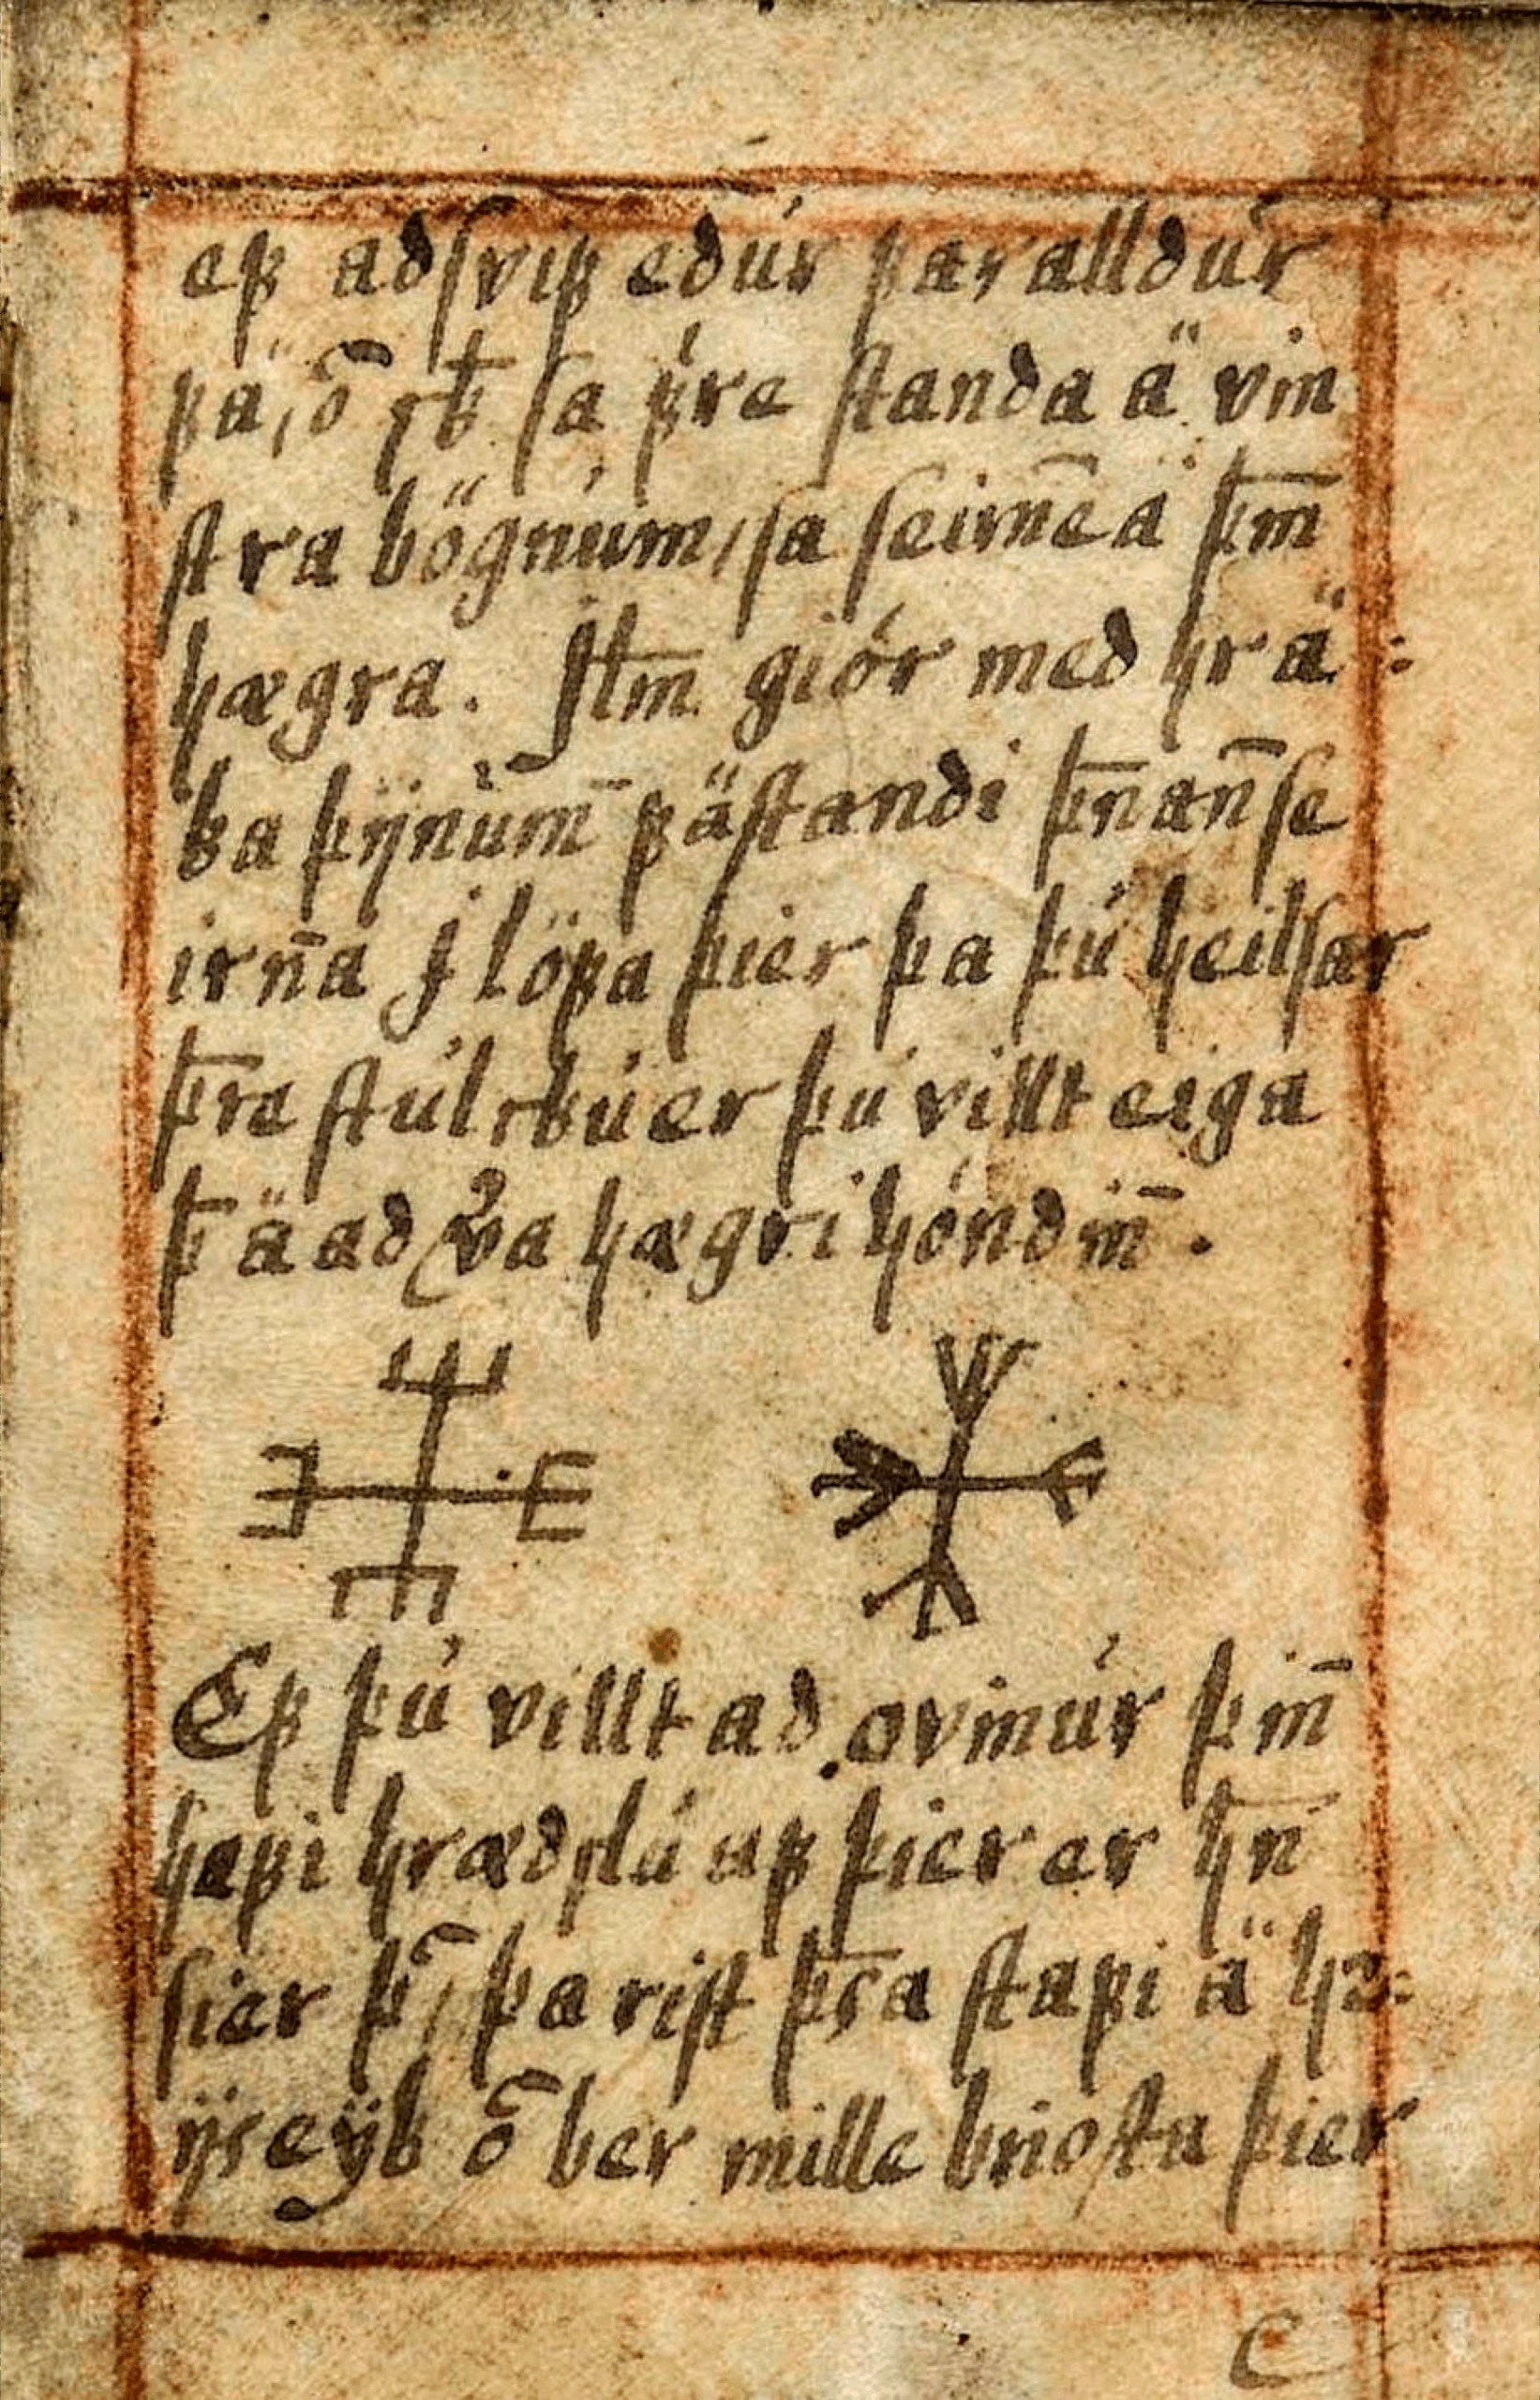 ef adsvif edúr far alldúr
fä, ō skͤ sa fyre standa ä vin
stra bögnúm, sa seirne ä þm̄
hægra. Jtm̄ giör med hrä:
ka þijnúm̄ fästandi þn̄an̄ se
irn̄a j löfa þier þa þú heilsar
þr̄e stúlkú er þú villt eiga
þ̄ ä ad v̉a hægri höndin̄.
Ef þú villt ad ovinúr þin̄
hafi hrædslú af þier er hn̄
sier þ̄, þa rist þs̄a stafi ä hr:
ijseyk ō ber mille briosta þier